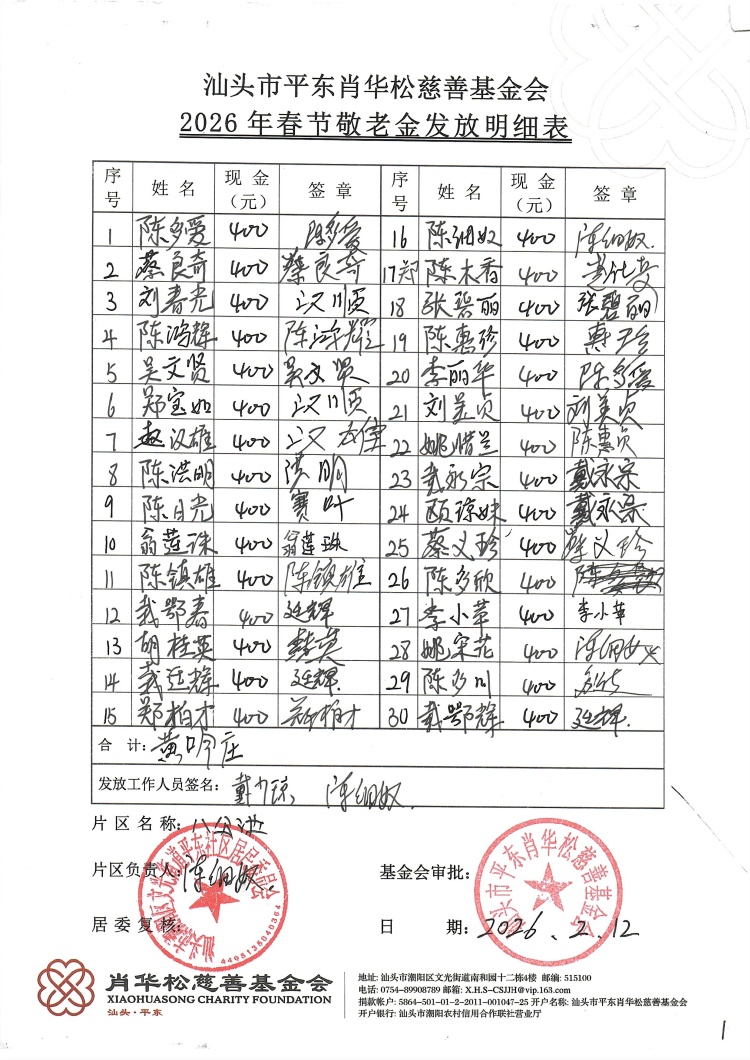 汕头市平东肖华松慈善基金会
2026年春节敬老金发放明细表
序号 姓名 现金（元） 签章 序号 姓名 现金（元） 签章
1 陈多爱 400 陈多爱 16 陈细奴 400 陈细奴.
2 蔡良奇 400 蔡良奇 17 郑 陈木香 400
3 刘春光 400 汉顺 18 张碧丽 400 张碧丽
4 陈鸿辉 400 陈鸿辉 19 陈惠珍 400 惠珍
5 吴文贤 400 吴文贤 20 李丽华 400 陈多爱
6 郑宝如 400 汉顺 21 刘美贞 400 刘美贞
7 赵汉雄 400 汉 22 姚惜兰 400 陈惠贞
8 陈洪明 400 洪明 23 戴永宗 400 戴永宗
9 陈日光 400 赛叶 24 顾琼妹 400 戴永宗
10 翁莲珠 400 翁莲珠 25 蔡义珍 400 蔡义珍
11 陈镇雄 400 陈镇雄 26 陈多欣 400
12 戴鄂春 400 廷辉 27 李小苹 400 李小苹
13 胡桂英 400 桂英 28 姚 花 400 陈细奴
14 戴廷辉 400 廷辉. 29 陈多川 400
15 郑柏才 400 郑柏才 30 戴鄂辉 400 廷辉.
合 计：黄吟庄
发放工作人员签名：戴 琼, 陈细奴.
片区名称：八分池
片区负责人：陈细奴. 基金会审批：
居委复核： 日 期：2026.2.12
4405135040364
汕头市平东肖华松慈善基金会
肖华松慈善基金会
XIAOHUASONG CHARITY FOUNDATION
汕头·平东
地址: 汕头市潮阳区文光街道南和园十二栋4楼 邮编: 515100
电话: 0754-89908789 邮箱: X.H.S-CSJJH@vip.163.com
捐款帐户: 5864-501-01-2-2011-001047-25 开户名称: 汕头市平东肖华松慈善基金会
开户银行: 汕头市潮阳农村信用合作联社营业厅
1